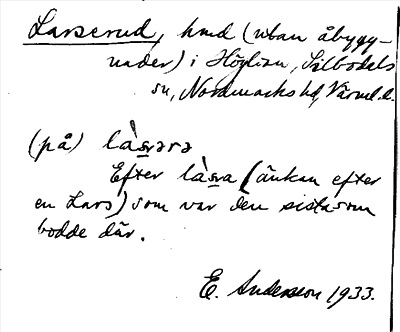 Larserud, hmd (utan åbygg-
nader) i Höglian, Silbodals
sn, Nordmarks hd, Värml. l.
(på) là̀sərə
Efter làsa (änkan efter
en Lars) som var den sista som
bodde där.
E. Anderson 1933.